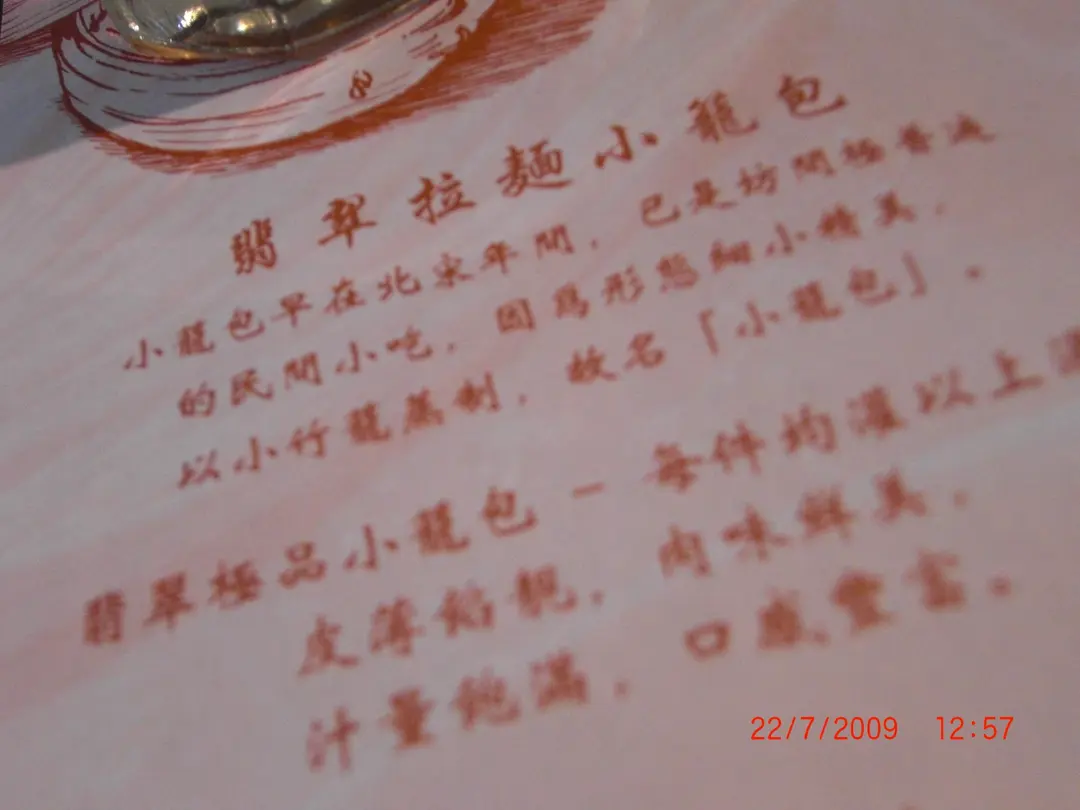 翡翠拉麵小龍包
小龍包早在北宋年間，已是坊間極普遍
的民間小吃，因爲形態細小精美，
以小竹籠蒸制，故名「小龍包」。
翡翠極品小龍包－每件均灌以上湯
皮薄餡靚，肉味鮮美，
汁量飽滿，口感豐富。
22/7/2009 12:57